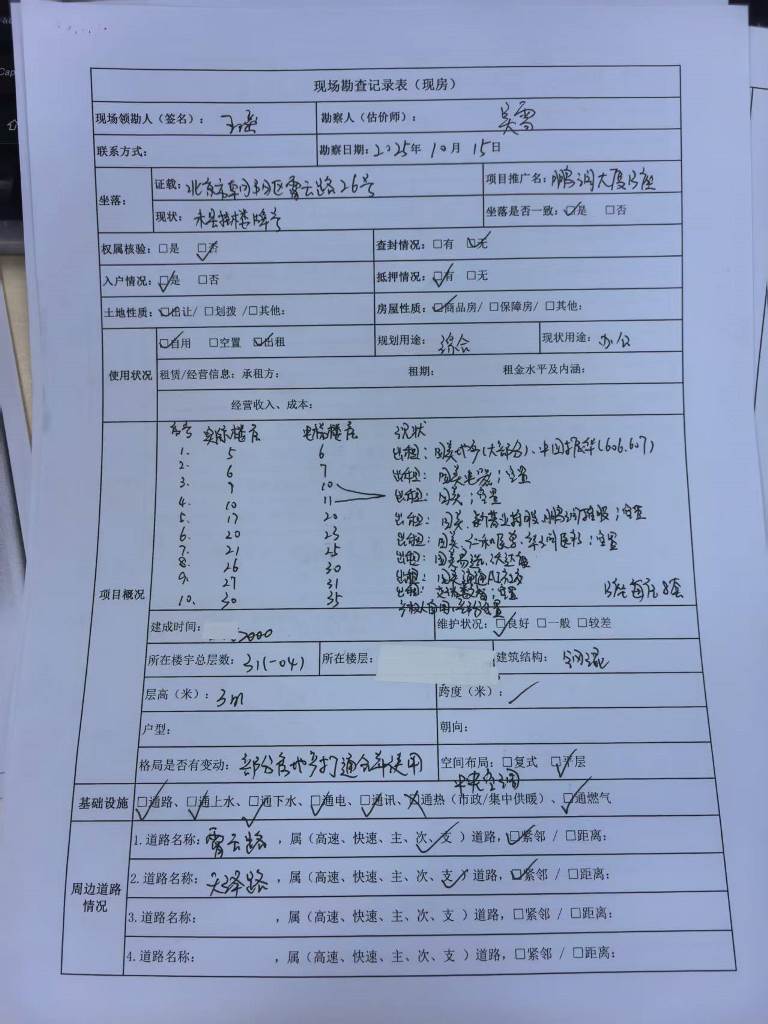 现场勘查记录表（现房）
现场领勘人（签名）： 勘察人（估价师）：吴雪
联系方式： 勘察日期：2025年10月15日
坐落： 证载：北京市朝阳区霄云路26号 项目推广名：鹏润大厦B座
现状：未悬挂楼牌号 坐落是否一致：☑是 □否
权属核验：□是 ☑否 查封情况：□有 ☑无
入户情况：☑是 □否 抵押情况：☑有 □无
土地性质：☑出让/ □划拨 /□其他： 房屋性质：☑商品房/ □保障房/ □其他：
使用状况 ☑自用 □空置 ☑出租 规划用途：综合 现状用途：办公
租赁/经营信息：承租方： 租期： 租金水平及内涵：
经营收入、成本：
项目概况
序号 实际楼层 电梯楼层 现状
1. 5 6 出租：国美地产(大部分)、中国(606.607)
2. 6 7 出租：国美电器；空置
3. 9 10 出租：国美；空置
4. 10 11
5. 17 20 出租：国美、鹏润控股；空置
6. 20 23 出租：国美、仁和医药、；空置
7. 21 25 出租：国美
8. 26 30 出租：国美
9. 27 31 出租：；空置
10. 30 35 每层8套
建成时间：2000 维护状况：☑良好 □一般 □较差
所在楼宇总层数：31(-04) 所在楼层： 建筑结构：钢混
层高（米）：3m 跨度（米）：／
户型： 朝向：
格局是否有变动：部分房地产打通合并使用 空间布局：□复式 ☑平层
中央空调
基础设施 ☑通路、☑通上水、☑通下水、☑通电、☑通讯、☒通热（市政/集中供暖）、☑通燃气
周边道路情况
1.道路名称：霄云路，属（高速、快速、主、次✓、支 ）道路，☑紧邻 / □距离：
2.道路名称：天泽路，属（高速、快速、主、次、支✓）道路，☑紧邻 / □距离：
3.道路名称： ，属（高速、快速、主、次、支 ）道路，□紧邻 / □距离：
4.道路名称： ，属（高速、快速、主、次、支 ）道路，□紧邻 / □距离：